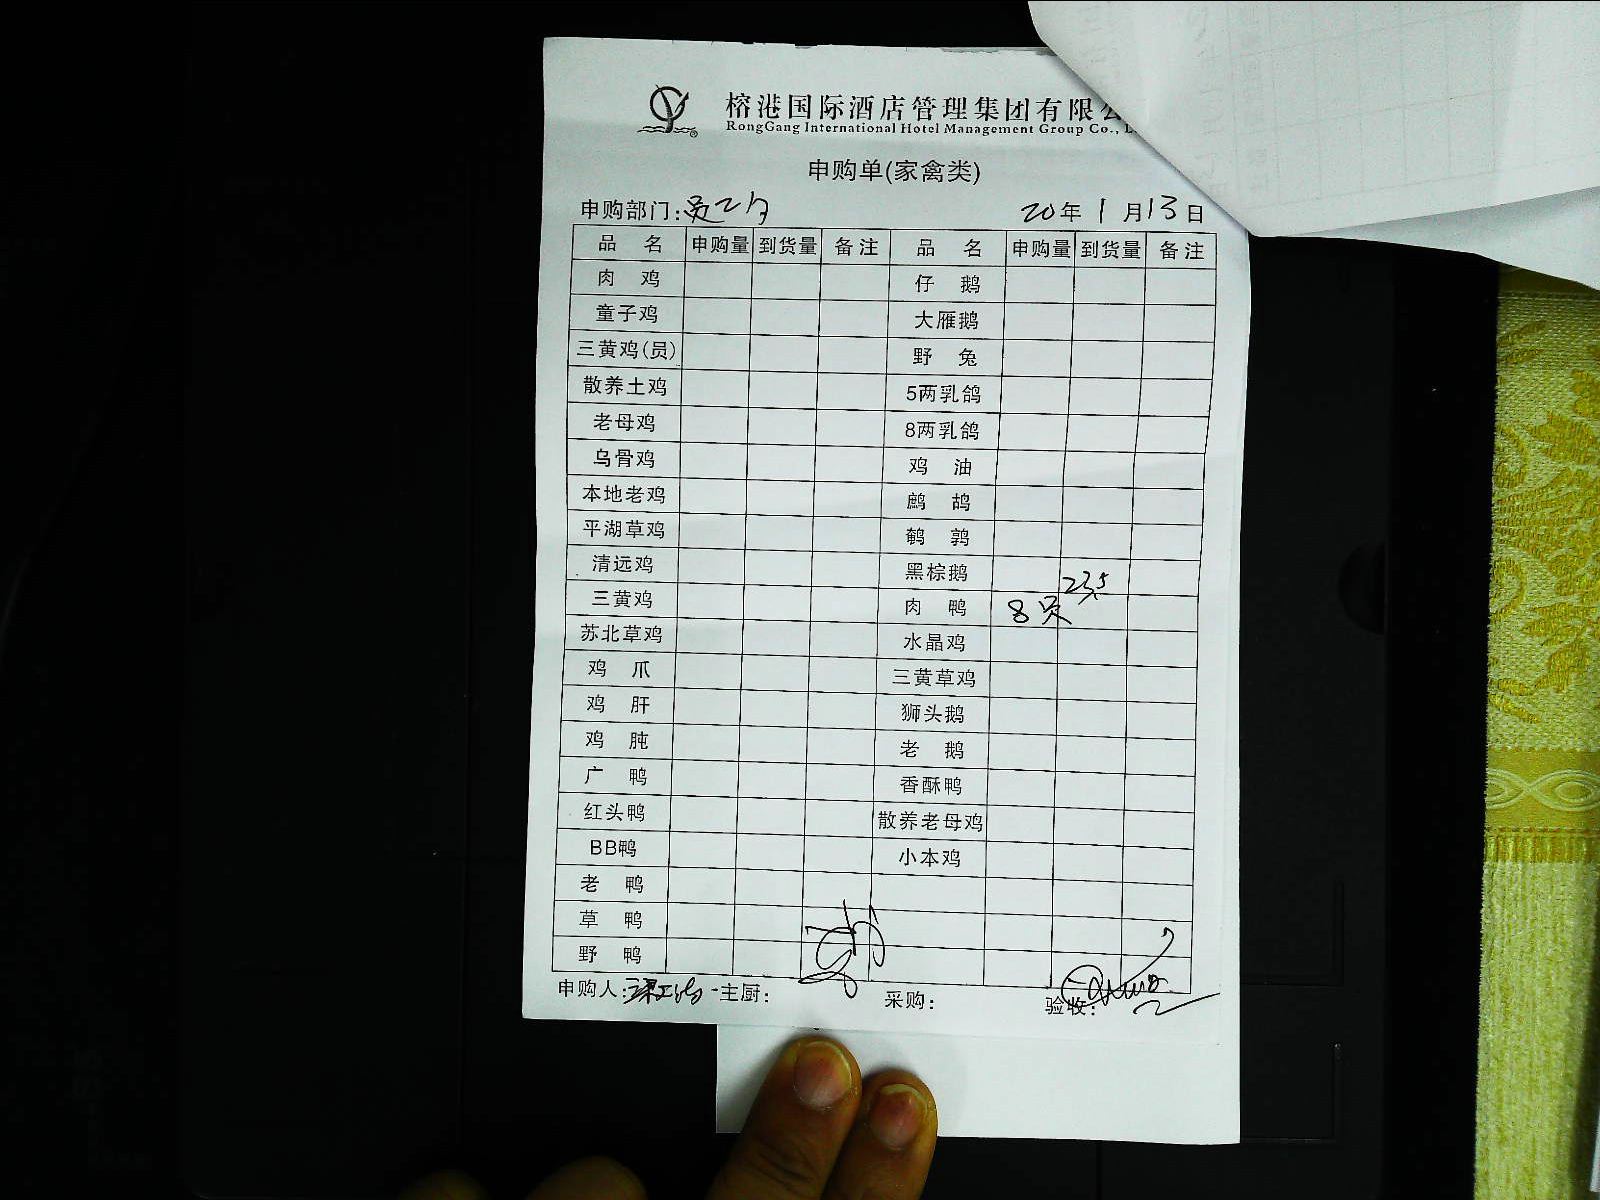 榕港国际酒店管理集团有限公
RongGang International Hotel Management Group Co.,
申购单(家禽类)
申购部门: 20年1月13日
品 名 申购量 到货量 备注 品 名 申购量 到货量 备注
肉 鸡 仔 鹅
童子鸡 大雁鹅
三黄鸡(员) 野 兔
散养土鸡 5两乳鸽
老母鸡 8两乳鸽
乌骨鸡 鸡 油
本地老鸡 鹧 鸪
平湖草鸡 鹌 鹑
清远鸡 黑棕鹅
三黄鸡 肉 鸭 8只 23.5
苏北草鸡 水晶鸡
鸡 爪 三黄草鸡
鸡 肝 狮头鹅
鸡 肫 老 鹅
广 鸭 香酥鸭
红头鸭 散养老母鸡
BB鸭 小本鸡
老 鸭
草 鸭
野 鸭
申购人: 主厨: 采购: 验收: